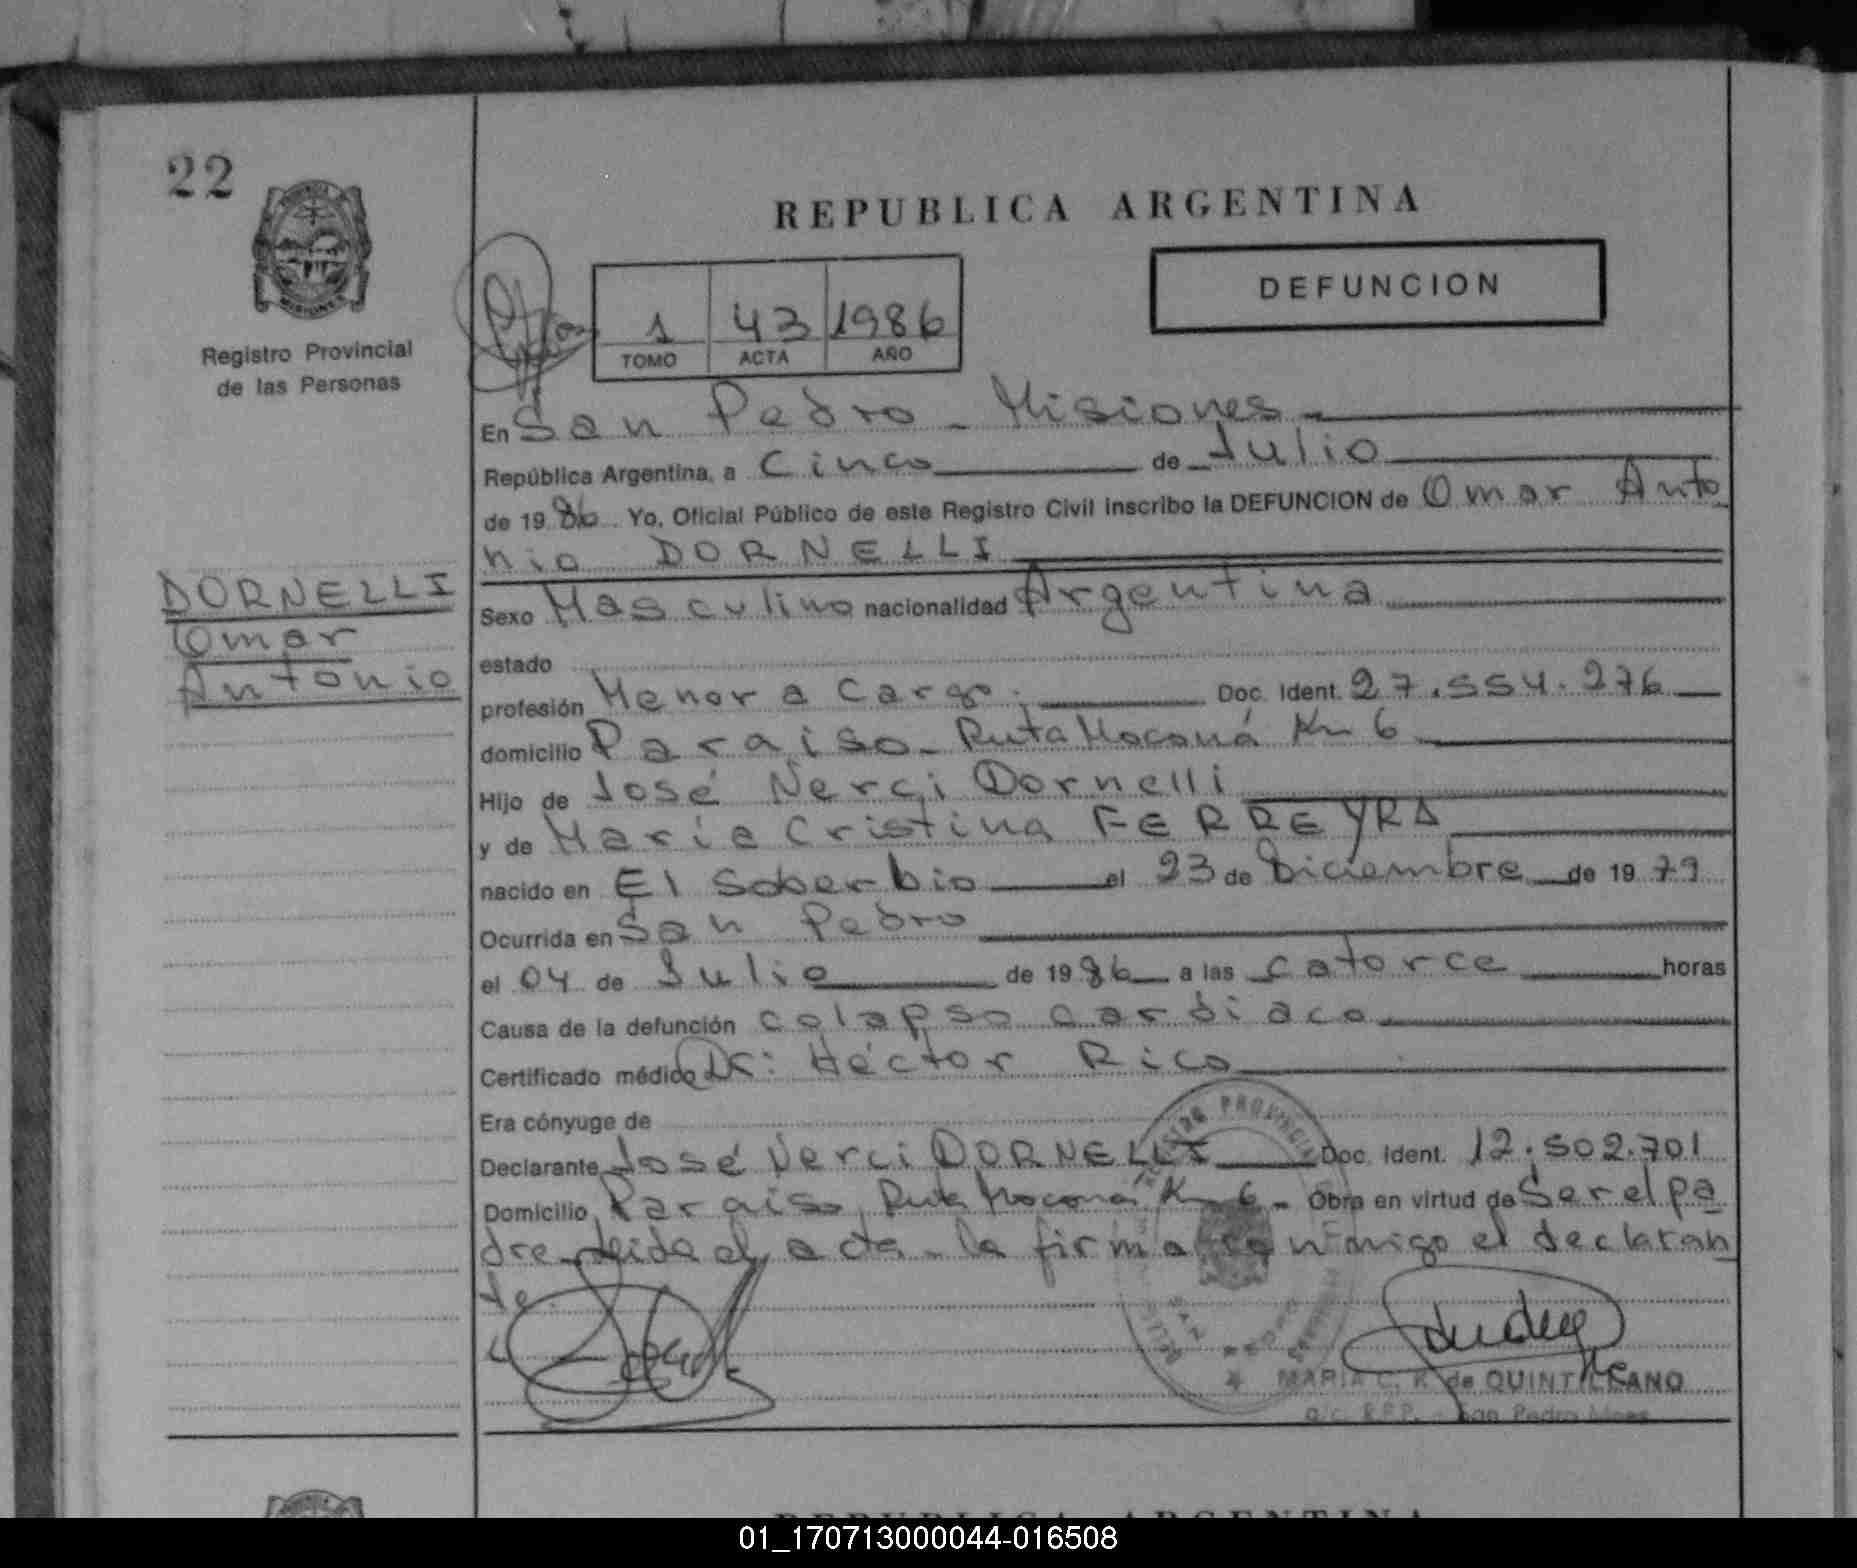 22
REPUBLICA ARGENTINA
DEFUNCION
1 43 1986
TOMO ACTA AÑO
Registro Provincial
de las Personas
En San Pedro - Misiones
República Argentina, a Cinco de Julio
de 1986 Yo, Oficial Público de este Registro Civil inscribo la DEFUNCION de Omar Anto
nio DORNELLI
DORNELLI
Omar
Antonio
Sexo Masculino nacionalidad Argentina
estado
profesión Menor a cargo. Doc. Ident. 27.554.276
domicilio Paraiso - Ruta Moconá Km 6
Hijo de José Nerci Dornelli
y de María Cristina FERREYRA
nacido en El Soberbio el 23 de Diciembre de 1979
Ocurrida en San Pedro
el 04 de Julio de 1986 a las catorce horas
Causa de la defunción colapso cardiaco
Certificado médico Dr: Héctor Rico
Era cónyuge de
Declarante José Nerci DORNELLI Doc. Ident. 12.502.701
Domicilio Paraiso, Ruta Moconá Km 6 - Obra en virtud de Ser el pa
dre leida el acta - la firma conmigo el declaran
te.
REGISTRO PROVINCIAL
SAN PEDRO
MARIA C. K. de QUINTILLANO
o/c. R.P.P. - San Pedro Mnes
REPUBLICA ARGENTINA
01_170713000044-016508